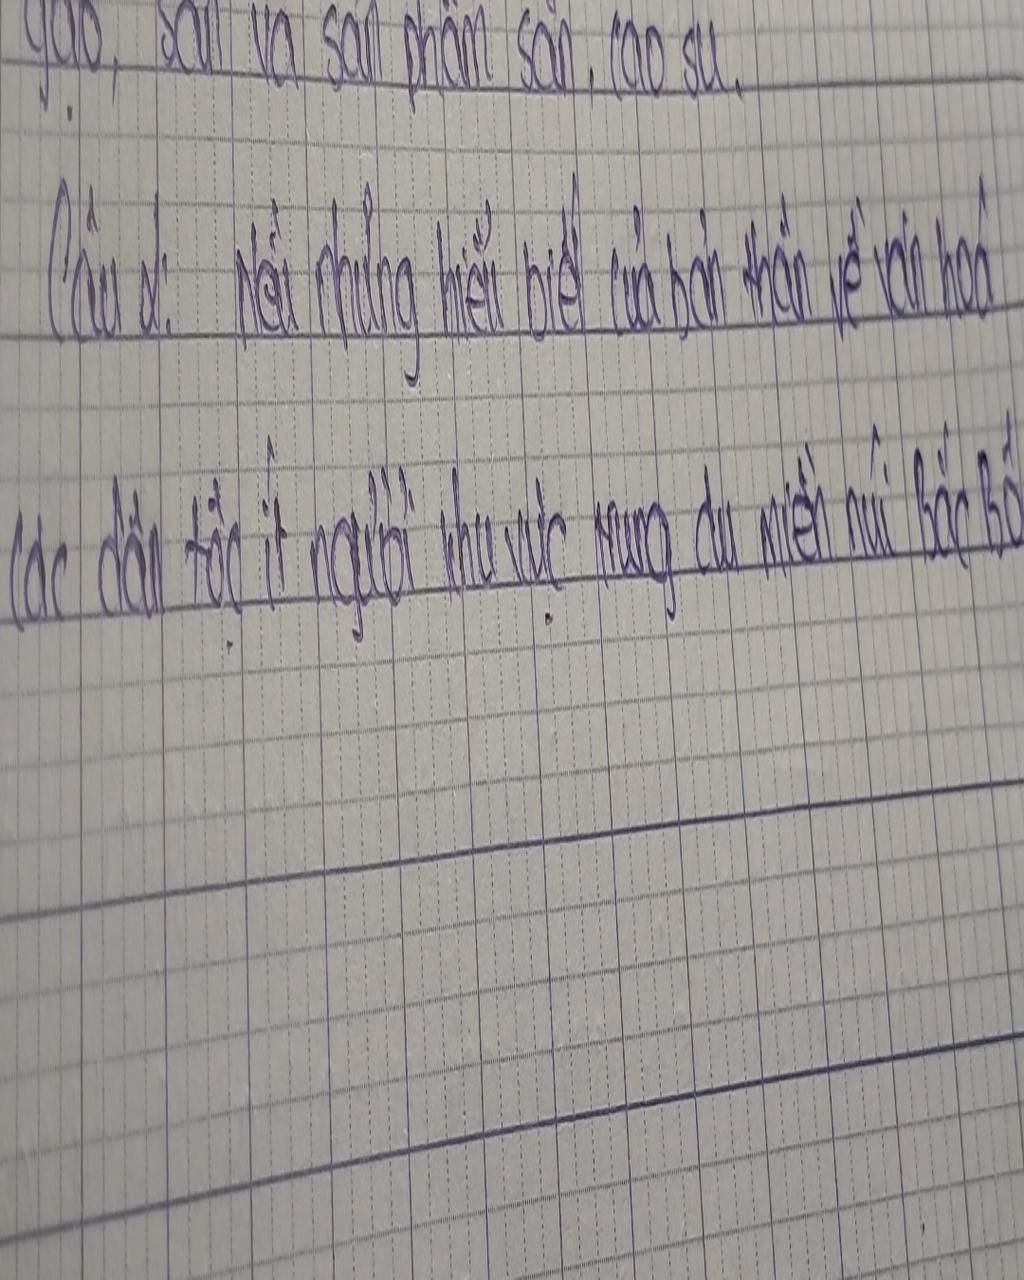 gạo, sắn và sản phẩm sắn, cao su.
Câu 2: Nêu những hiểu biết của bản thân về văn hoá
các dân tộc ít người khu vực trung du miền núi Bắc Bộ